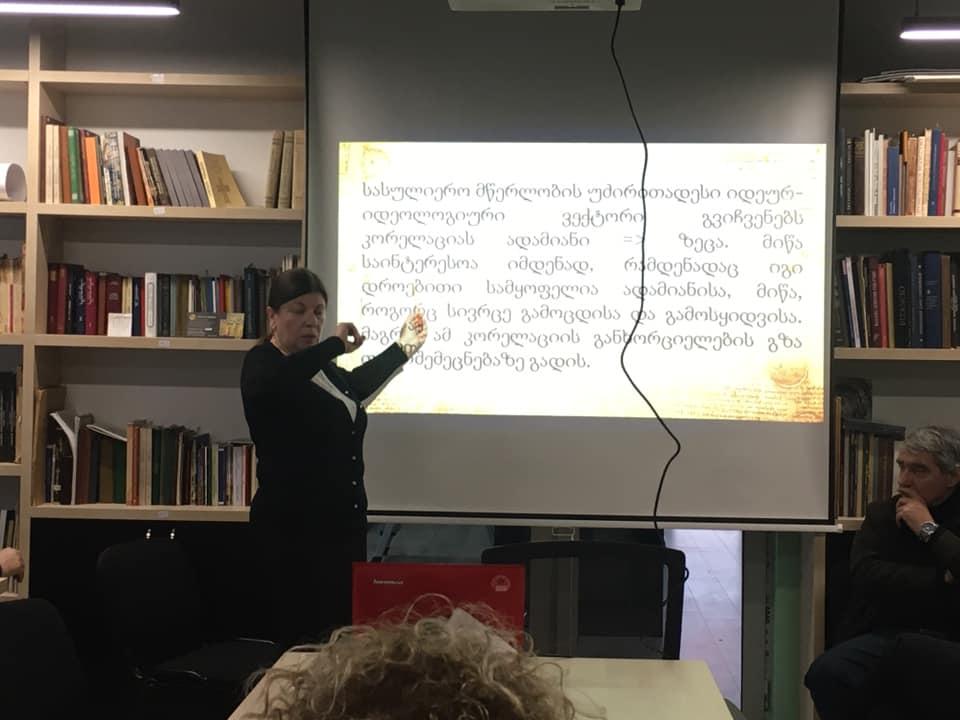 სასულიერო მწერლობის უძირითადესი იდეურ-
იდეოლოგიური ვექტორი გვიჩვენებს
კორელაციას ადამიანი => ზეცა. მიწა
საინტერესოა იმდენად, რამდენადაც იგი
დროებითი სამყოფელია ადამიანისა, მიწა,
როგორც სივრცე გამოცდისა და გამოსყიდვისა.
მაგრამ ამ კორელაციის განხორციელების გზა
გადის.
lenovo